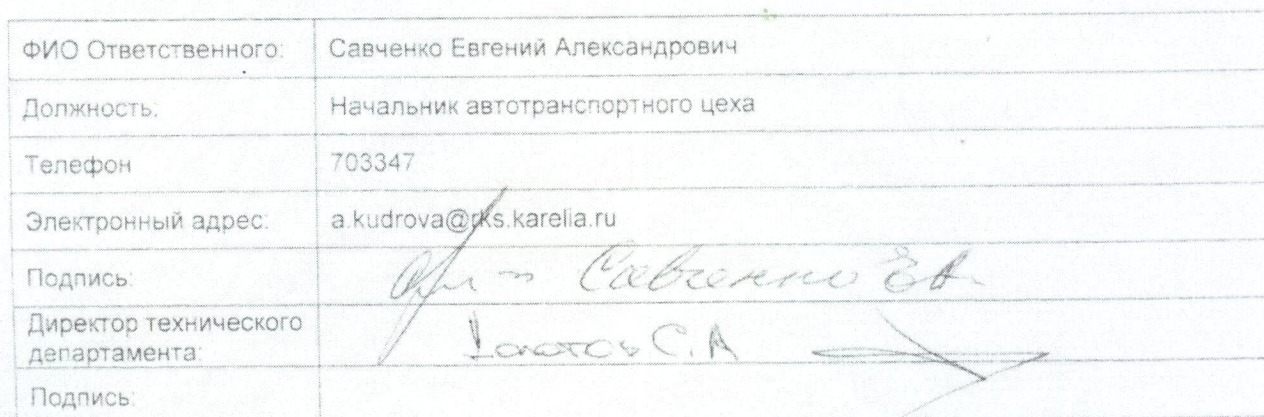 ФИО Ответственного: Савченко Евгений Александрович
Должность: Начальник автотранспортного цеха
Телефон 703347
Электронный адрес: a.kudrova@rks.karelia.ru
Подпись: Савченко ЕА.
Директор технического
департамента: С.А
Подпись: